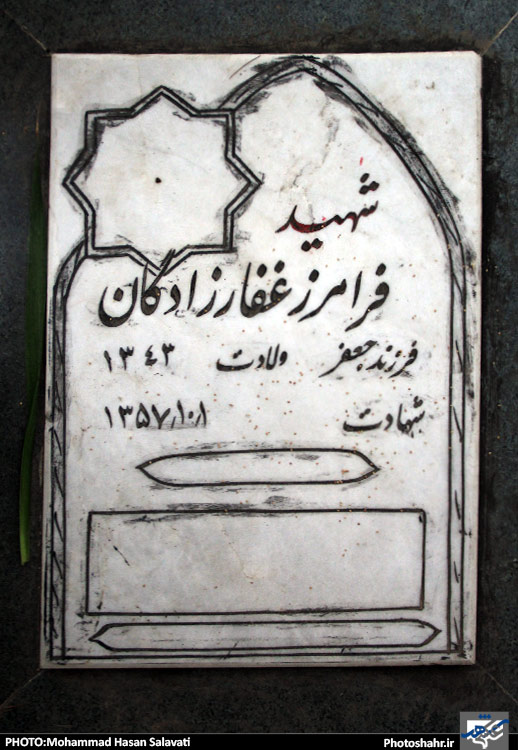 شهید
فرامرز غفارزادگان
فرزند جعفر ولادت ۱۳۴۳
شهادت ۱۳۵۷/۱۰/۱
PHOTO:Mohammad Hasan Salavati
Photoshahr.ir